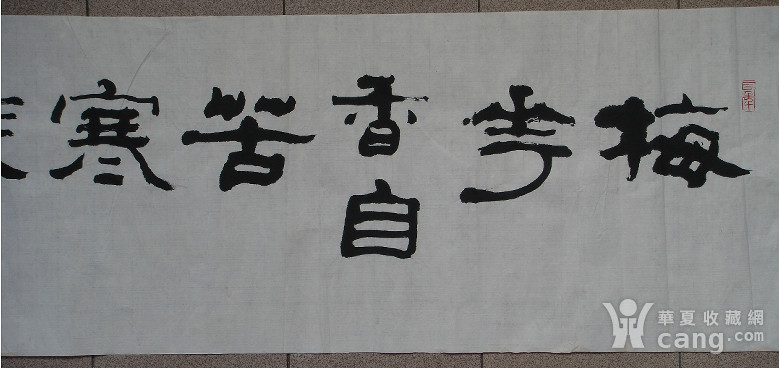 梅花香自苦寒
華夏收藏網
cang.com